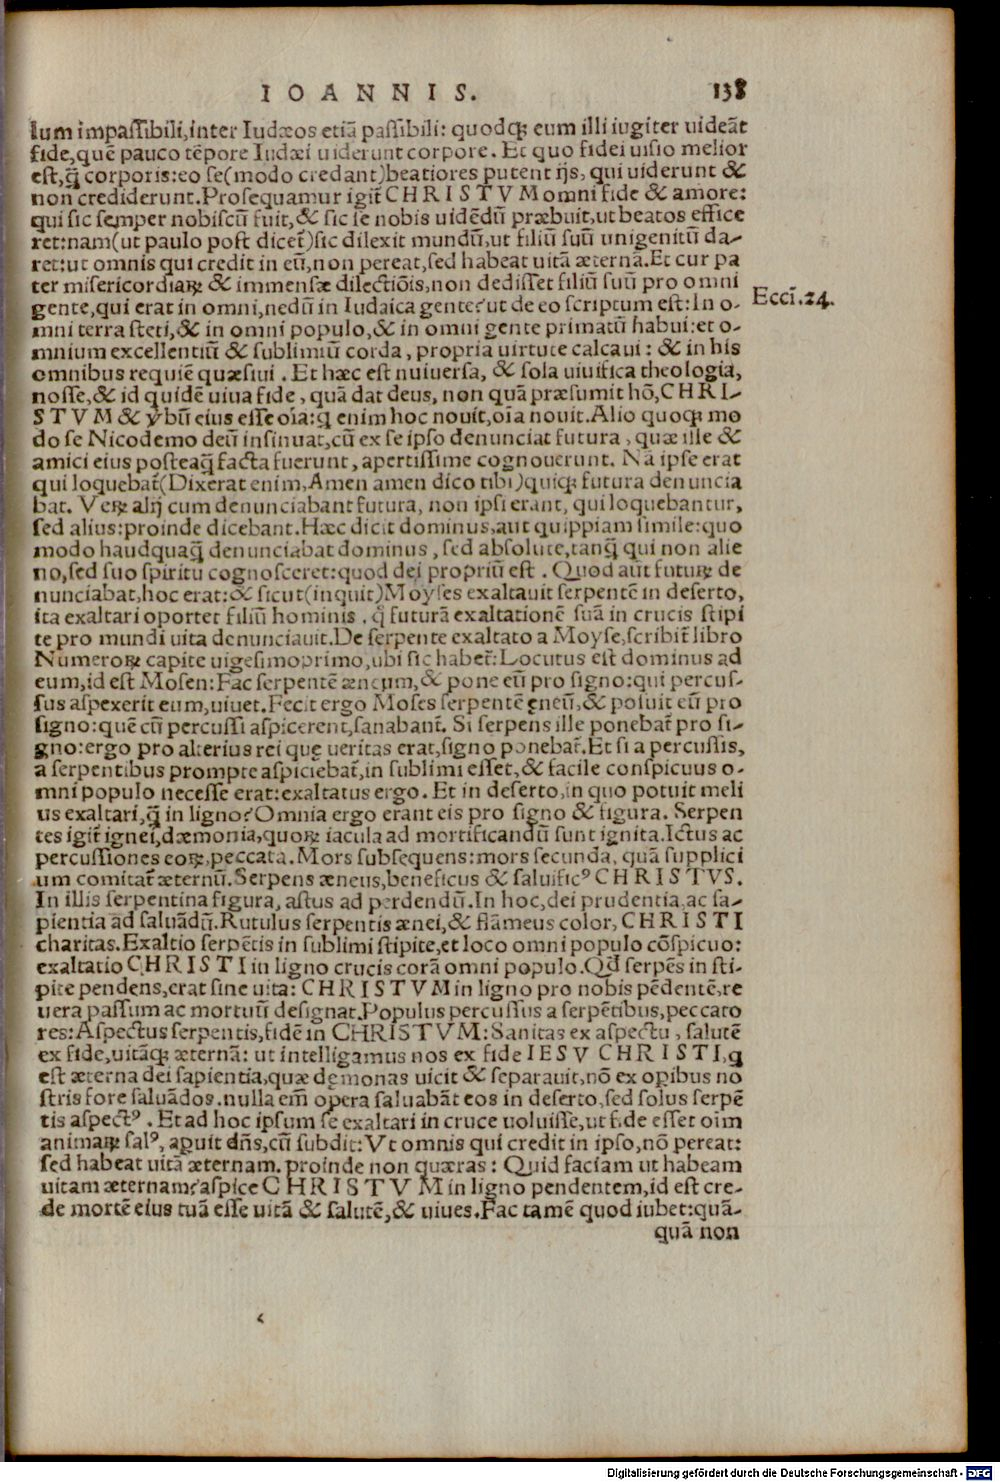 IOANNIS. 138
lum impaſſibili,inter Iudæos etiã paſſibili: quodq; eum illi iugiter uideãt
fide,quẽ pauco tẽpore Iudæi uiderunt corpore. Et quo fidei uiſio melior
est,q̃ corporis:eo se(modo credant)beatiores putent ijs, qui uiderunt &
non crediderunt.Prosequamur igit̃ CHRISTVM omni fide & amore:
qui sic semper nobiscũ fuit,& sic se nobis uidẽdũ præbuit,ut beatos effice
ret:nam(ut paulo post dicet̃)sic dilexit mundũ,ut filiũ suũ unigenitũ da-
ret:ut omnis qui credit in eũ,non pereat,sed habeat uitã æternã.Et cur pa
ter misericordiaꝝ & immensæ dilectiõis,non dedisset filiũ suũ pro omni
gente,qui erat in omni,nedũ in Iudaica gente?ut de eo scriptum est:In o-
Ecci̅.24.
mni terra steti,& in omni populo,& in omni gente primatũ habui:et o-
mnium excellentiũ & sublimiũ corda, propria uirtute calcaui: & in his
omnibus requiẽ quæsiui. Et hæc est nuiuersa, & sola uiuifica theologia,
nosse,& id quidẽ uiua fide, quã dat deus, non quã præsumit hõ,CHRI-
STVM & ỹbũ eius esse oĩa:q̃ enim hoc nouit,oĩa nouit.Alio quoq; mo
do se Nicodemo deũ insinuat,cũ ex se ipso denunciat futura, quæ ille &
amici eius posteaq̃ facta fuerunt, apertissime cognouerunt. Nã ipse erat
qui loquebat̃(Dixerat enim,Amen amen dico tibi)quiq; futura denuncia
bat. Veꝝ alij cum denunciabant futura, non ipsi erant, qui loquebantur,
sed alius:proinde dicebant.Hæc dicit dominus,aut quippiam simile:quo
modo haudquaq̃ denunciabat dominus, sed absolute,tanq̃ qui non alie
no,sed suo spiritu cognosceret:quod dei propriũ est. Quod aũt futuꝝ de
nunciabat,hoc erat:& sicut(inquit)Moyses exaltauit serpentẽ in deserto,
ita exaltari oportet filiũ hominis. q̃ futurã exaltationẽ suã in crucis stipi
te pro mundi uita denunciauit.De serpente exaltato a Moyse,scribit̃ libro
Numeroꝝ capite uigesimoprimo,ubi sic habet̃:Locutus est dominus ad
eum,id est Mosen:Fac serpentẽ æneum,& pone eũ pro signo:qui percus-
sus aspexerit eum,uiuet.Fecit ergo Moses serpentẽ ęneũ,& posuit eũ pro
signo:quẽ cũ percussi aspicerent,sanabant̃. Si serpens ille ponebat̃ pro si-
gno:ergo pro alterius rei quę ueritas erat,signo ponebat̃.Et si a percussis,
a serpentibus prompte aspiciebat̃,in sublimi esset,& facile conspicuus o-
mni populo necesse erat:exaltatus ergo. Et in deserto,in quo potuit meli
us exaltari,q̃ in ligno?Omnia ergo erant eis pro signo & figura. Serpen
tes igit̃ ignei,dæmonia,quoꝝ iacula ad mortificandũ sunt ignita.Ictus ac
percussiones eoꝝ,peccata.Mors subsequens:mors secunda, quã supplici
um comitat̃ æternũ.Serpens æneus,beneficus & saluificꝰ CHRISTVS.
In illis serpentina figura, astus ad perdendũ.In hoc,dei prudentia,ac sa-
pientia ad saluãdũ.Rutulus serpentis ænei,& flãmeus color, CHRISTI
charitas.Exaltio serpẽtis in sublimi stipite,et loco omni populo cõspicuo:
exaltatio CHRISTI in ligno crucis corã omni populo.Qđ serpẽs in sti-
pite pendens,erat sine uita: CHRISTVM in ligno pro nobis pẽdentẽ,re
uera passum ac mortuũ designat.Populus percussus a serpẽtibus,peccato
res:Aspectus serpentis,fidẽ in CHRISTVM:Sanitas ex aspectu, salutẽ
ex fide,uitãq; æternã: ut intelligamus nos ex fide IESV CHRISTI,q̃
est æterna dei sapientia,quæ dęmonas uicit & separauit,nõ ex oꝑibus no
stris fore saluãdos.nulla em̃ opera saluabãt eos in deserto,sed solus serpẽ
tis aspectꝰ. Et ad hoc ipsum se exaltari in cruce uoluisse,ut fides esset oĩm
animaꝝ salꝰ, aꝑuit dñs,cũ subdit:Vt omnis qui credit in ipso,nõ pereat:
sed habeat uitã æternam.proinde non quæras: Quid faciam ut habeam
uitam æternam?aspice CHRISTVM in ligno pendentem,id est cre-
de mortẽ eius tuã esse uitã & salutẽ,& uiues.Fac tamẽ quod iubet:quã-
quã non
Digitalisierung gefördert durch die Deutsche Forschungsgemeinschaft - DFG